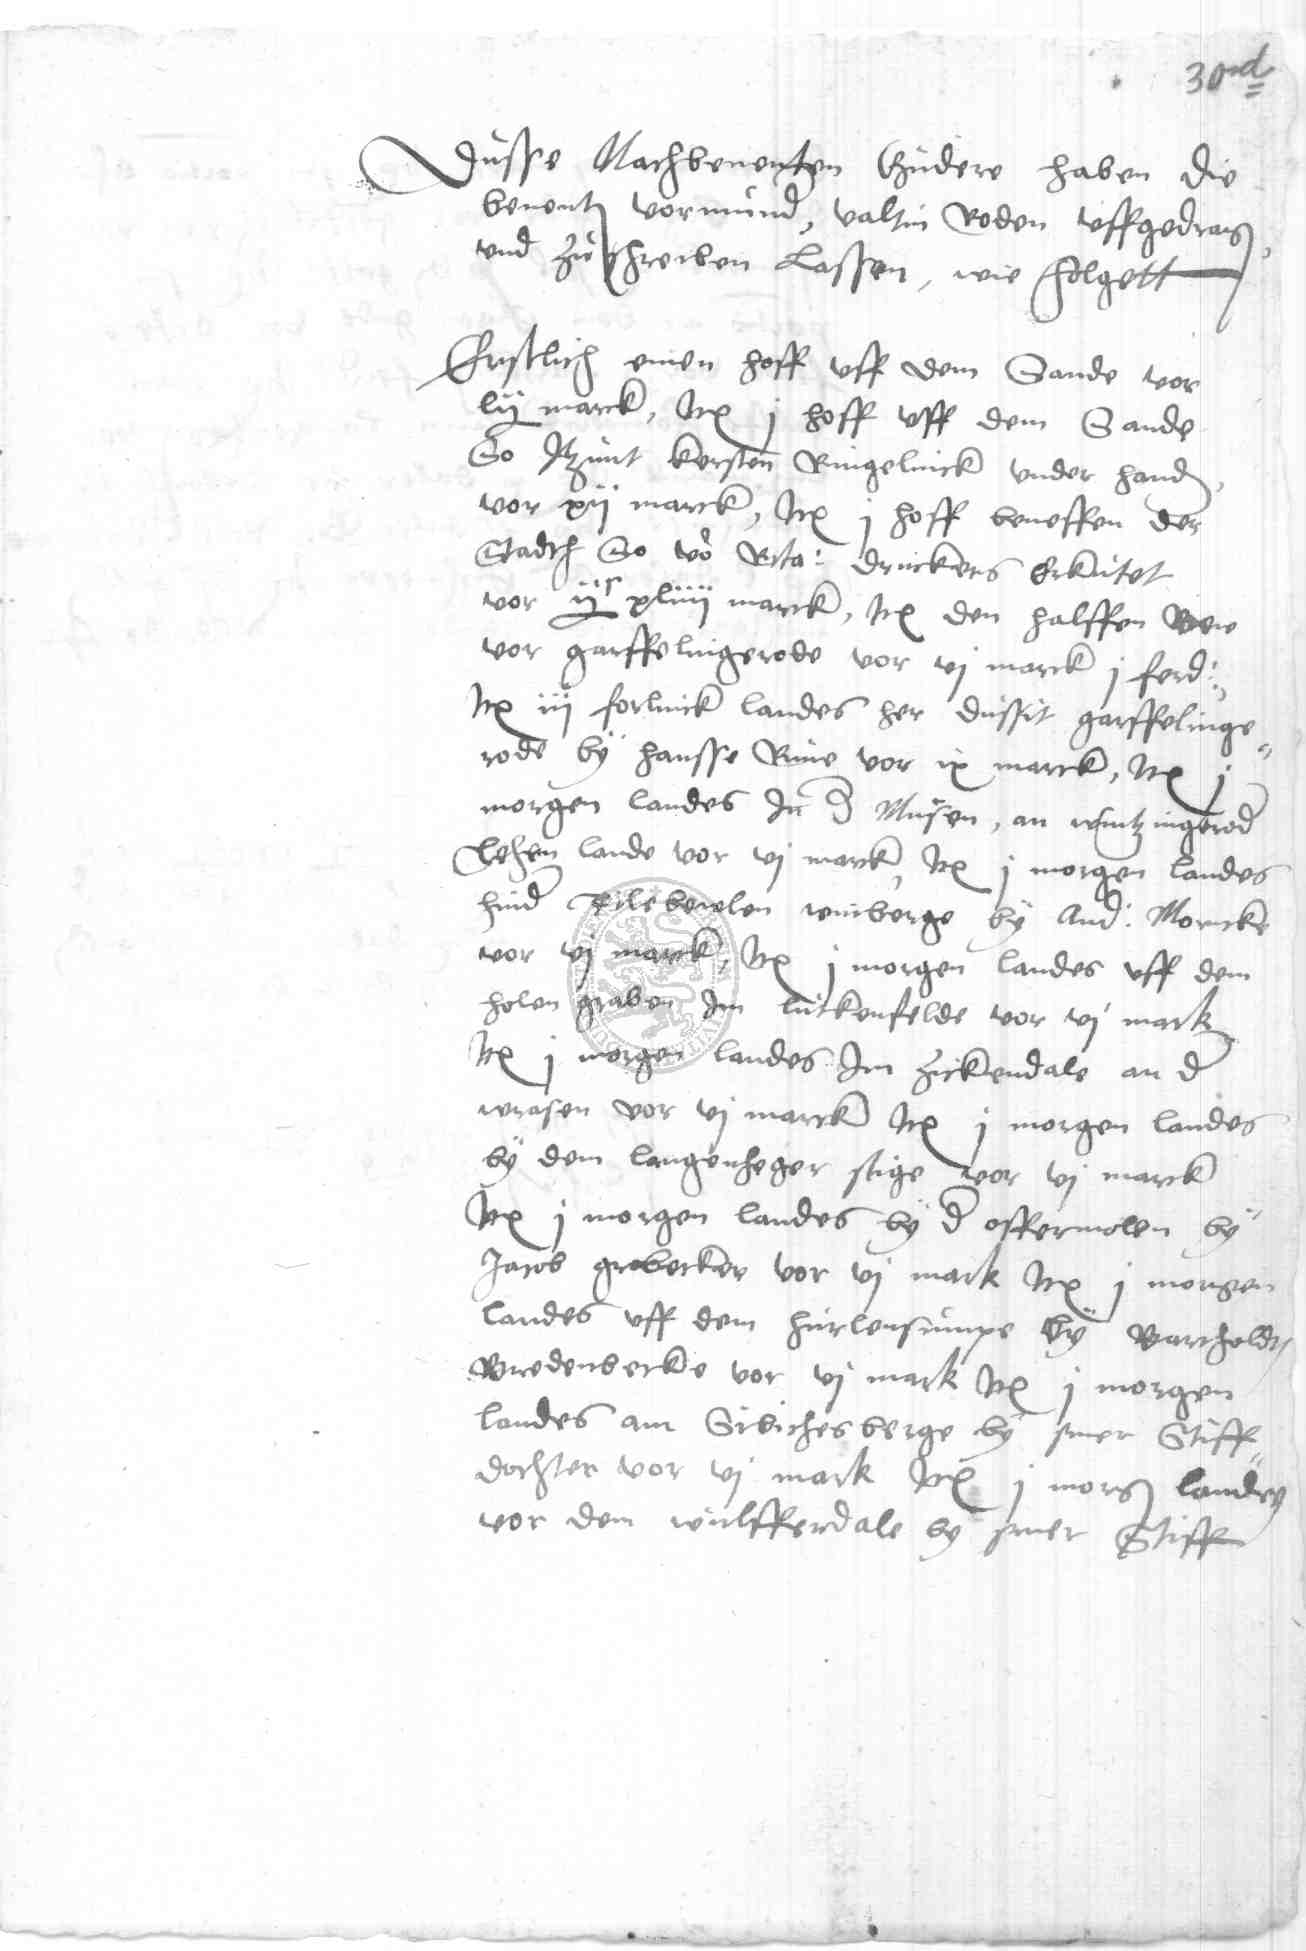 30rd
Dusse Nachbenenten Gudere haben die
benentn vormund, valtin Roden uffgedragn,
vnd zuschreiben Lassen, wie Folgett
Erstlich einen hoff vff dem Sande vor
lij marck, Itp j hoff vff dem Sande
So Itzunt kersten Ringelinck vnder hand,
vor xij marck, Itp j hoff beneffen der
Stadth So vo druckers Erkutet
vor ijc xliiij marck, Itp den halffen
vor garffelingerode vor vj marck j ferd:,
Itp iij forlinck landes her dussit garffelinge
rode by hansse Rine vor ix marck, Itp j
morgen landes In d Musen, an wintzingerod
Lehen lande vor vj marck, Itp j morgen landes
hind Tilebeulen winberge by And: Mornicke
vor vj marck, Itp j morgen landes vff dem
holen graben Im lutkenfelde vor vj mark
Itp j morgen landes Im Zickendale an d
wrasen vor vj marck Itp j morgen landes
by dem langenheger stige vor vj marck
Itp j morgen landes by d offermolen by
Jacob grobecker vor vj mark Itp j morgen
landes vff dem hurlensumpe by Barcholdt
Bredenbecke vor vj mark Itp j morgen
landes am Sibichesberge by siner Stiff
dochter vor vj mark Itp j morgn landes
vor dem wulfferdale by siner Stiff